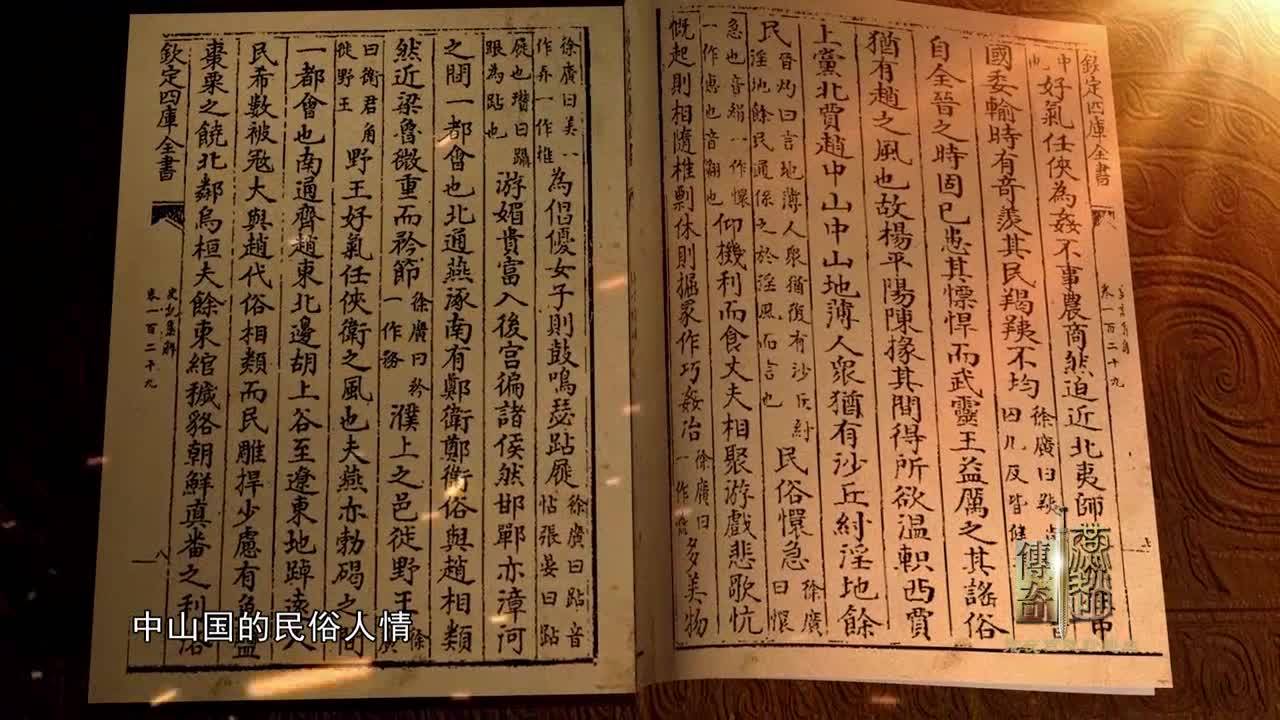 欽定四庫全書
卷一百二十九
中
也
好氣任俠為姦不事農商然迫近北夷師
國委輸時有竒羨其民羯羠不均
徐廣曰羠
皆健
自全晉之時固已患其慓悍而武靈王益厲之其謠俗
猶有趙之風也故楊平陽陳掾其間得所欲温軹西賈
上黨北賈趙中山中山地薄人衆猶有沙丘紂淫地餘
民
晉灼曰言地薄人衆猶復有沙丘紂
淫地餘民通係之於淫風而言也
民俗懁急
徐廣
曰懁
急也音絹一作懁
一作惠也音翾也
仰機利而食丈夫相聚游戲悲歌忼
慨起則相隨椎剽休則掘冢作巧姦冶
徐廣曰
一作蠱
多美物
徐廣曰美一
作弄一作椎
為倡優女子則鼓鳴瑟跕屣
徐廣曰跕音
帖張晏曰跕
屣也瓚曰躡
跟為跕也
游媚貴富入後宫徧諸侯然邯鄲亦漳河
之間一都會也北通燕涿南有鄭衛鄭衛俗與趙相類
然近梁魯微重而矜節
徐廣曰矜
一作務
濮上之邑徙野王
徐
廣
曰衛君角
徙野王
野王好氣任俠衛之風也夫燕亦勃碣之間
一都會也南通齊趙東北邊胡上谷至遼東地踔遠人
民希數被冦大與趙代俗相類而民雕捍少慮有魚鹽
棗栗之饒北鄰烏桓夫餘東綰穢貉朝鮮真番之利
欽定四庫全書
史記集解
卷一百二十九
八
中山国的民俗人情
燕趙
傳奇